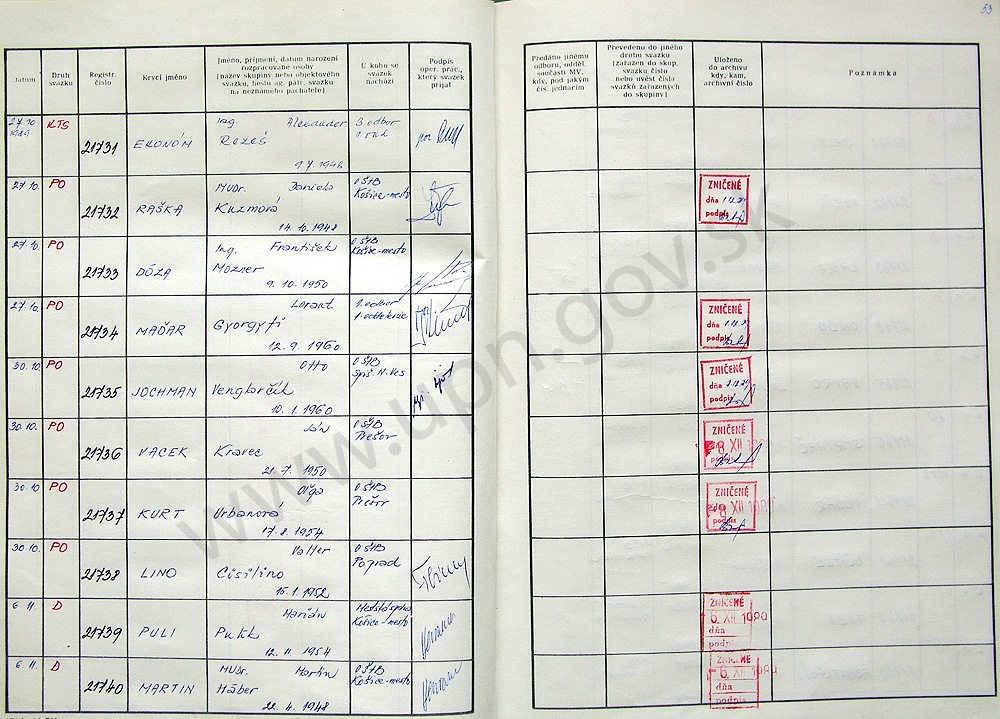 53
Datum
Druh svazku
Registr. číslo
Krycí jméno
Jméno, příjmení, datum narození
rozpracované osoby
[název skupiny nebo objektového
svazku, heslo ag. pátr. svazku
na neznámého pachatele]
U koho se
svazek
nachází
Podpis
oper. prac.,
který svazek
přijal
Předáno jinému
odboru, odděl.
součásti MV,
kdy, pod jakým
čís. jednacím
Převedeno do jiného
druhu svazku
[zařazen do skup.
svazku číslo
nebo uvést čísla
svazků zařazených
do skupiny]
Uloženo
do archivu
kdy, kam,
archivní číslo
Poznámka
27.10. 1989 KTS 21731 EKONÓM Ing. Alexander
Rezeš
9.7.1948
3. odbor
27.10. PO 21732 RAŠKA MUDr. Daniela
Kuzmová
14.10.1948
OŠtB
Košice-mesto
ZNIČENÉ
dňa
podpis
27.10 PO 21733 DÓZA Ing. František
Mozner
9.10.1950
OŠtB
Košice-mesto
27.10. PO 21734 MAĎAR Lorant
Gyorgyfi
12.9.1960
1. oddelenie
ZNIČENÉ
dňa
podpis
30.10. PO 21735 JOCHMAN Otto
Venglarčik
10.1.1960
OŠtB
Spiš. N. Ves
ZNIČENÉ
dňa
podpis
30.10. PO 21736 VACEK Ján
Kravec
21.7.1950
OŠtB
Prešov
ZNIČENÉ
XII
30.10 PO 21737 KURT Oľga
Urbanová
17.8.1954
OŠtB
Prešov
ZNIČENÉ
XII 1989
podpis
30.10. PO 21738 LINO Valter
Cisilino
15.1.1952
OŠtB
Poprad
6 11 D 21739 PULI Marián
Pukk
12.11.1954
Košice-mesto
ZNIČENÉ
6. XII 1989
dňa
podpis
6.11. D 21740 MARTIN MUDr. Martin
Háber
22.4.1948
OŠtB
Košice-mesto
ZNIČENÉ
6. XII 1989
dňa
podpis
www.upn.gov.sk